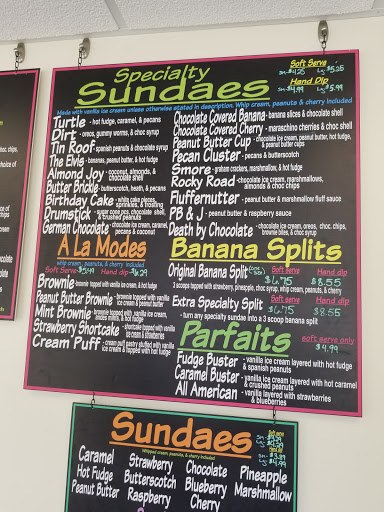 Specialty
Sundaes
Soft Serve
Sm $4.25 Lg $5.25
Hand Dip
Sm $4.99 Lg $5.99
Made with vanilla ice cream unless otherwise stated in description. Whip cream, peanuts & cherry included
Turtle - hot fudge, caramel, & pecans
Dirt - oreos, gummy worms, & choc syrup
Tin Roof - spanish peanuts & chocolate syrup
The Elvis - bananas, peanut butter, & hot fudge
Almond Joy - coconut, almonds, & chocolate shell
Butter Brickle - butterscotch, heath, & pecans
Birthday Cake - white cake pieces, sprinkles, & frosting
Drumstick - sugar cone pcs, chocolate shell, & crushed peanuts
German Chocolate - chocolate ice cream, caramel, & coconut
Chocolate Covered Banana - banana slices & chocolate shell
Chocolate Covered Cherry - maraschino cherries & choc shell
Peanut Butter Cup - chocolate ice cream, peanut butter, hot fudge, & peanut butter cups
Pecan Cluster - pecans & butterscotch
Smore - graham crackers, marshmallow, & hot fudge
Rocky Road - chocolate ice cream, marshmallows, almonds & choc chips
Fluffernutter - peanut butter & marshmallow fluff sauce
PB & J - peanut butter & raspberry sauce
Death by Chocolate - chocolate ice cream, oreos, choc. chips, brownie bites, & choc syrup
A La Modes
whip cream, peanuts, & cherry included
Soft Serve - $5.49 Hand dip - $6.29
Brownie - brownie topped with vanilla ice cream, & hot fudge
Peanut Butter Brownie - brownie topped with vanilla ice cream & peanut butter
Mint Brownie - brownie topped with vanilla ice cream, andes mints, & hot fudge
Strawberry Shortcake - shortcake topped with vanilla ice cream & strawberries
Cream Puff - cream puff pastry stuffed with vanilla ice cream & topped with hot fudge
Banana Splits
Original Banana Split
Soft serve Hand dip
$6.75 $8.55
3 scoops topped with strawberry, pineapple, choc syrup, whip cream, peanuts, & cherry
Extra Specialty Split Soft serve Hand dip
$6.75 $8.55
- turn any specialty sundae into a 3 scoop banana split
Parfaits
soft serve only
$4.99
Fudge Buster - vanilla ice cream layered with hot fudge & spanish peanuts
Caramel Buster - vanilla ice cream layered with hot caramel & crushed peanuts
All American - vanilla layered with strawberries & blueberries
Sundaes
Whipped cream, peanuts, & cherry included
Soft serve
Hand dip
Caramel Strawberry Chocolate Pineapple
Hot Fudge Butterscotch Blueberry Marshmallow
Peanut Butter Raspberry Cherry